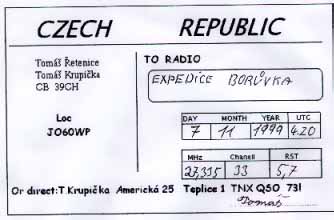 CZECH REPUBLIC
Tomáš Řetenice
Tomáš Krupička
CB 39CH
TO RADIO
EXPEDICE BORŮVKA
Loc
JO60WP
DAY MONTH YEAR UTC
7 11 1999 4.20
MHz Chanell RST
27,335 33 5,7
Or direct:T.Krupička Americká 25 Teplice 1 TNX QSO 73!
Tomáš